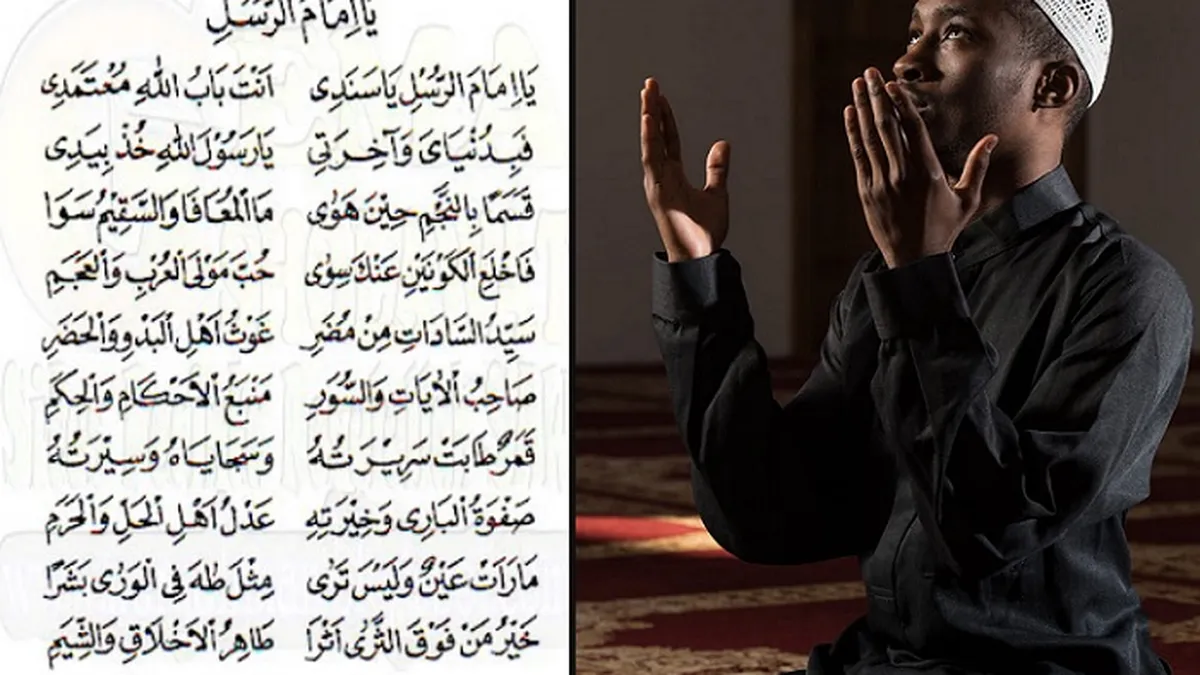 يَااِمَامَ الرُّسْلِ
يَااِمَامَ الرُّسْلِ يَاسَنَدِى اَنْتَ بَابُ اللهِ مُعْتَمَدِى
فَبِدُنْيَاىَ وَآخِرَتِى يَارَسُوْلَ اللهِ خُذْ بِيَدِى
قَسَمًا بِالنَّجْمِ حِيْنَ هَوٰى مَاالْمُعَافَا وَالسَّقِيْمُ سَوَا
فَاخْلَعِ الْكَوْنَيْنِ عَنْكَ سِوٰى حُبِّ مَوْلَى الْعُرْبِ وَالْعَجَمِ
سَيِّدُ السَّادَاتِ مِنْ مُضَرِ غَوْثُ اَهْلِ الْبَدْوِ وَالْحَضَرِ
صَاحِبُ الْاٰيَاتِ وَالسُّوَرِ مَنْبَعُ الْاَحْكَامِ وَالْحِكَمِ
قَمَرٌ طَابَتْ سَرِيْرَتُهُ وَسَجَايَاهُ وَسِيْرَتُهُ
صَفْوَةُ الْبَارِى وَخِيْرَتِهِ عَدْلُ اَهْلِ الْحَلِّ وَالْحَرَمِ
مَارَاَتْ عَيْنٌ وَلَيْسَ تَرٰى مِثْلَ طٰهَ فِى الْوَرٰى بَشَرًا
خَيْرُ مَنْ فَوْقَ الثَّرٰى اَثَرًا طَاهِرُ الْاَخْلَاقِ وَالشِّيَمِ